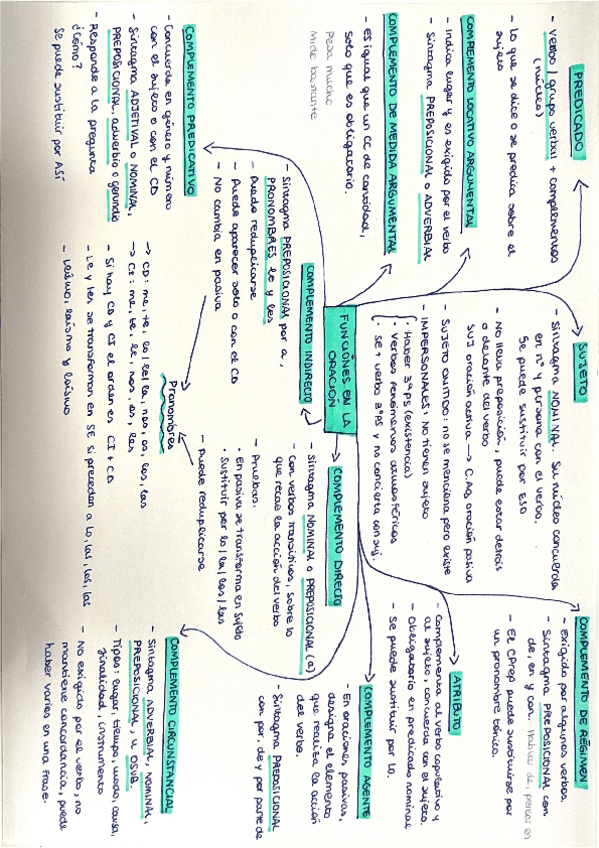 PREDICADO
- Verbo / grupo verbal + complementos
(núcleo)
- Lo que se dice o se predica sobre el
sujeto
COMPLEMENTO LOCATIVO ARGUMENTAL
- Indica lugar y es exigido por el verbo
- Sintagma PREPOSICIONAL o ADVERBIAL
COMPLEMENTO DE MEDIDA ARGUMENTAL
- Es igual que un CC de cantidad,
solo que es obligatorio.
Pesa mucho
Mide bastante
COMPLEMENTO PREDICATIVO
- Concuerda en género y número
con el sujeto o con el CD
- Sintagma ADJETIVAL o NOMINAL,
PREPOSICIONAL, adverbio o gerundio
- Responde a la pregunta
¿Cómo?
Se puede sustituir por ASÍ
SUJETO
- Sintagma NOMINAL. Su núcleo concuerda
en nº y persona con el verbo.
Se puede sustituir por ESO
- No lleva preposición, puede estar detrás
o delante del verbo
SUJ oración activa → C.AG oración pasiva
- SUJETO OMITIDO: no se menciona pero existe
- IMPERSONALES: No tienen sujeto
· Haber 3ªPS (existencia)
· Verbos fenómenos atmosféricos
· Se + verbo 3ªPS y no concierta con suj.
FUNCIONES EN LA
ORACIÓN
COMPLEMENTO INDIRECTO
- Sintagma PREPOSICIONAL por a,
PRONOMBRES le y les
- Puede reduplicarse
- Puede aparecer solo o con el CD
- No cambia en pasiva
Pronombres
→ CD: me, te, lo/la/le, nos, os, los, las
→ CI: me, te, le, nos, os, les
- Si hay CD y CI el orden es CI + CD
- Le y les se transforman en SE si preceden a lo, la, los, las
- Leísmo, laísmo y loísmo
COMPLEMENTO DIRECTO
- Sintagma NOMINAL o PREPOSICIONAL (a)
- Con verbos transitivos, sobre lo
que recae la acción del verbo
- Pruebas:
· En pasiva se transforma en sujeto
· Sustituir por lo/la/los/las
- Puede reduplicarse
COMPLEMENTO DE RÉGIMEN
- Exigido por algunos verbos.
- Sintagma PREPOSICIONAL con
de, en y con. Hablar de, pensar en
- El CPrep puede sustituirse por
un pronombre tónico.
ATRIBUTO
- Complementa al verbo copulativo y
al sujeto, concuerda con el sujeto.
- Obligatorio en predicado nominal
- Se puede sustituir por lo.
COMPLEMENTO AGENTE
- En oraciones pasivas,
designa el elemento
que realiza la acción
del verbo.
- Sintagma PREPOSICIONAL
con por, de y por parte de
COMPLEMENTO CIRCUNSTANCIAL
- Sintagma ADVERBIAL, NOMINAL,
PREPOSICIONAL, u OSUB.
- Tipos: lugar, tiempo, modo, causa,
finalidad, instrumento
- No exigido por el verbo, no
mantiene concordancia, puede
haber varios en una frase.